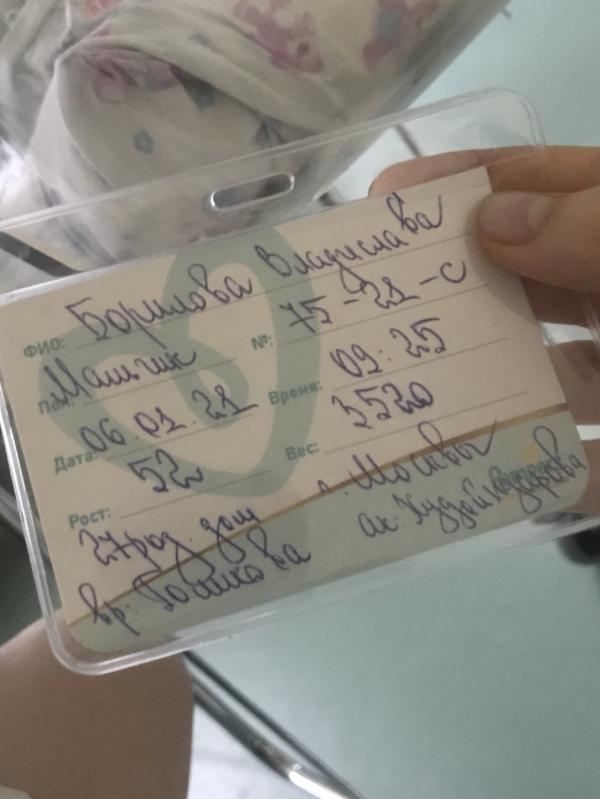 ФИО: Борилова Владислава
Пол: Мальчик №: 75-21-С
Дата: 06.01.21 Время: 09:25
Рост: 52 Вес: 3520
27 род. дом г. Москвы
вр. ак. Худойназарова